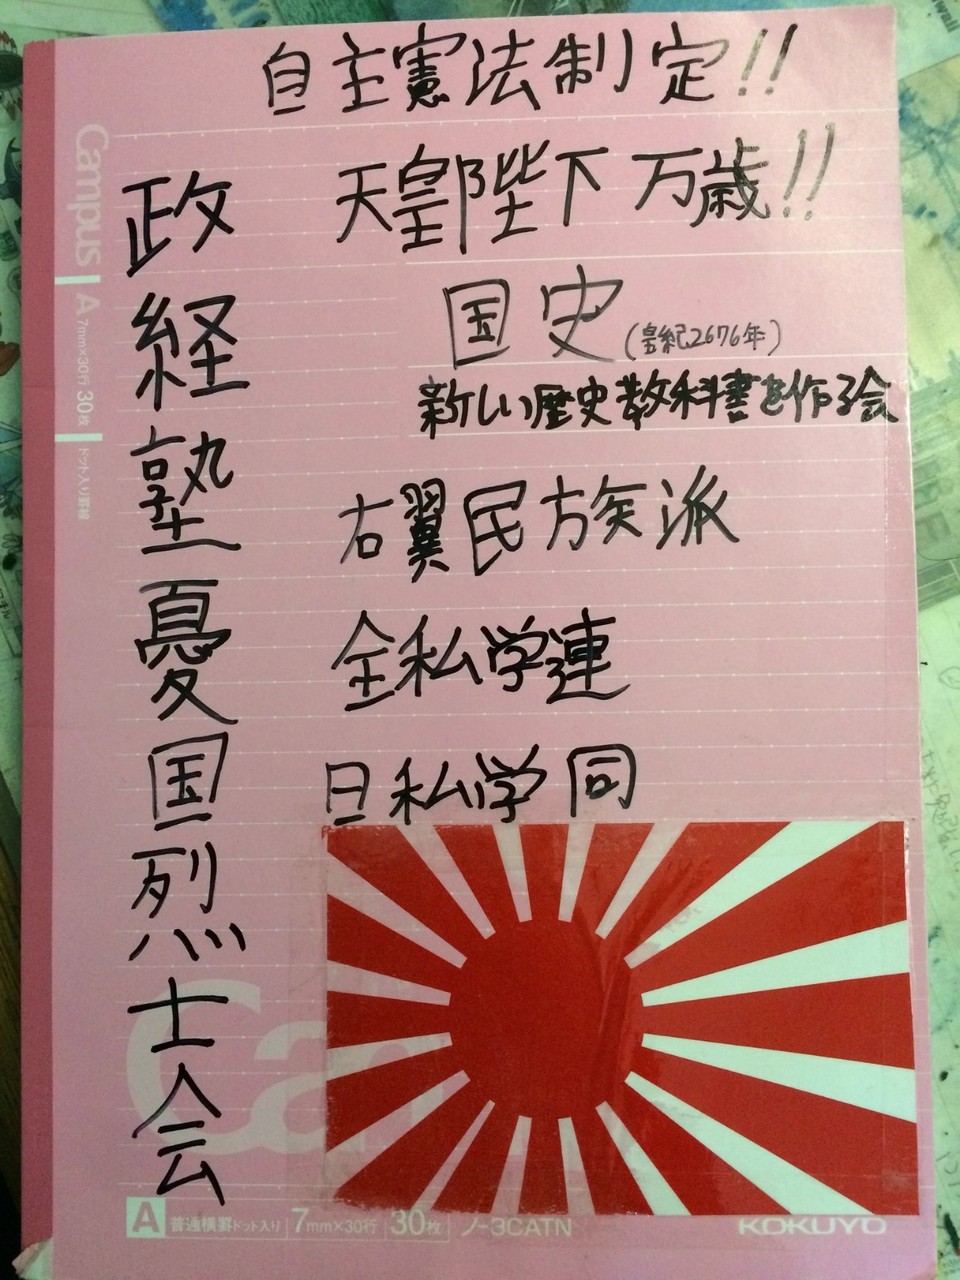 自主憲法制定!!
天皇陛下万歳!!
国史
(皇紀2676年)
新しい歴史教科書を作る会
右翼民族派
全私学連
日私学同
政経塾憂国烈士会
Campus
A 7mm×30行 30枚 ドット入り罫線
Cam
A 普通横罫ドット入り 7mm×30行 30枚 ノ-3CATN
KOKUYO